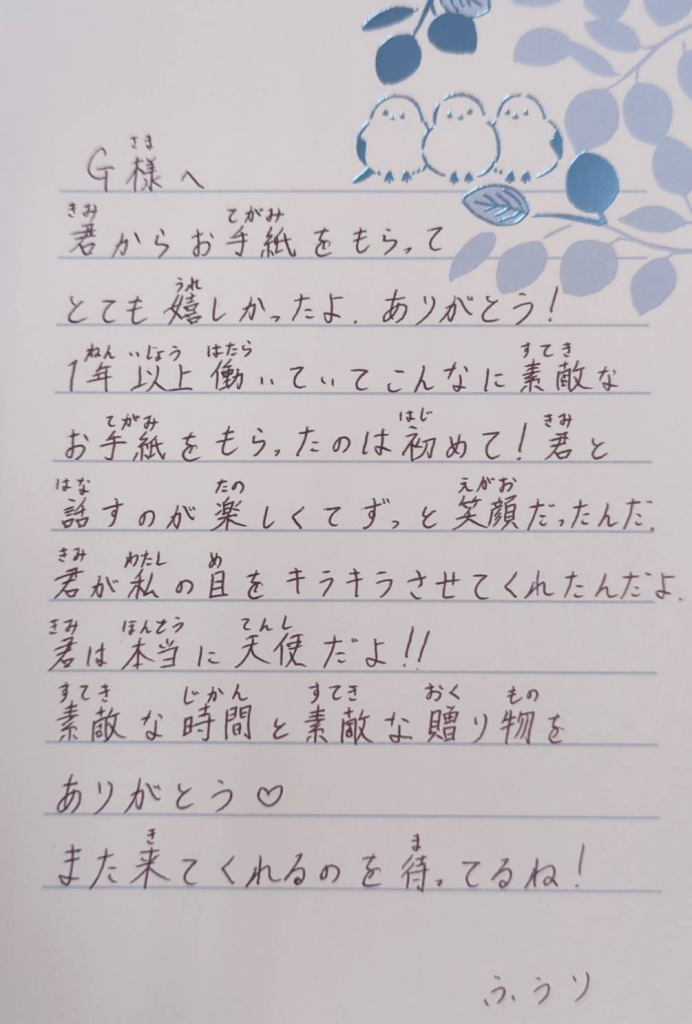 G様へ
君からお手紙をもらって
とても嬉しかったよ.ありがとう!
1年以上働いていてこんなに素敵な
お手紙をもらったのは初めて!君と
話すのが楽しくてずっと笑顔だったんだ.
君が私の目をキラキラさせてくれたんだよ.
君は本当に天使だよ!!
素敵な時間と素敵な贈り物を
ありがとう♡
また来てくれるのを待ってるね!
ふうり